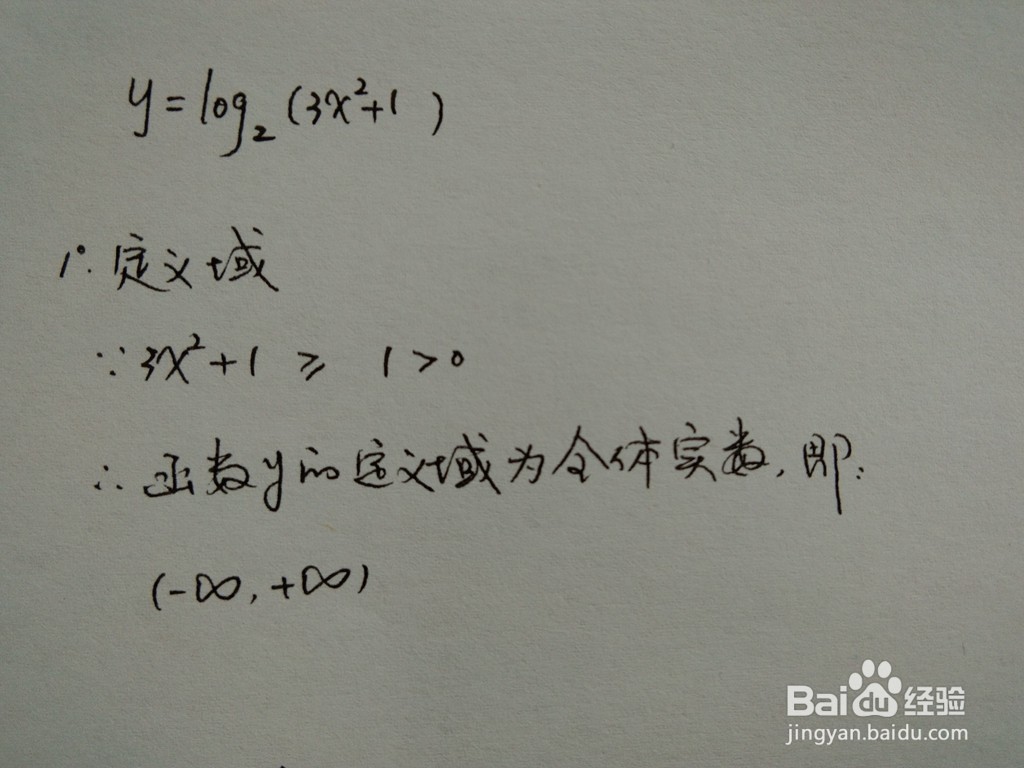 y=log₂(3x²+1)
1°. 定义域
∵3x²+1 ≥ 1>0
∴函数y的定义域为全体实数,即:
(-∞,+∞)
Baidu经验
jingyan.baidu.com